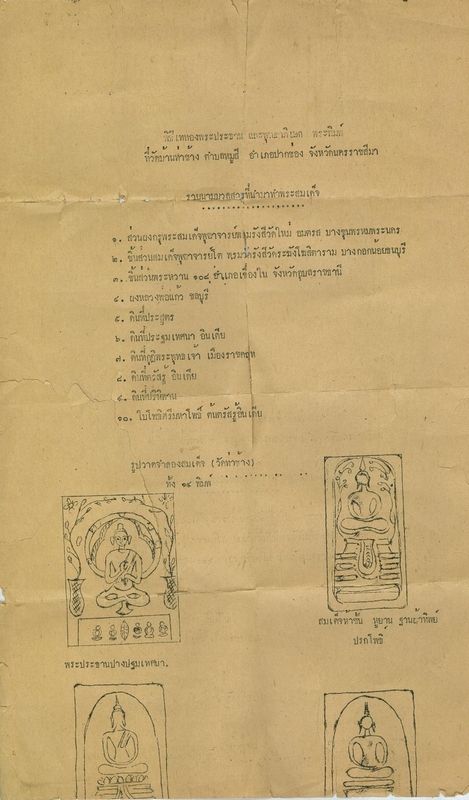 พิธีเททองพระประธาน และพุทธาภิเษก พระพิมพ์
ที่วัดบ้านท่าช้าง ตำบลหมูสี อำเภอปากช่อง จังหวัดนครราชสีมา
รายนามมวลสารที่นำมาทำพระสมเด็จ
๑. ส่วนผงกรุพระสมเด็จพุฒาจารย์พรหมรังสีวัดใหม่ อมตรส บางขุนพรหมพระนคร
๒. ชิ้นส่วนสมเด็จพุฒาจารย์โต พรหมรังสีวัดระฆังโฆสิตาราม บางกอกน้อยธนบุรี
๓. ชิ้นส่วนพระหวาน ๑๐๘ อำเภอเขื่องใน จังหวัดอุบลราชธานี
๔. ผงหลวงพ่อแก้ว ชลบุรี
๕. ดินที่ประสูตร
๖. ดินที่ประฐมเทศนา อินเดีย
๗. ดินที่กุฏิพระพุทธเจ้า เมืองราชคฤห
๘. ดินที่ตรัสรู้ อินเดีย
๙. ดินที่ปรินิพาน
๑๐. ใบโพธิศรีมหาโพธิ์ ต้นตรัสรู้อินเดีย
รูปวาดจำลองสมเด็จ (วัดท่าช้าง)
ทั้ง ๑๔ พิมพ์
สมเด็จห้าชั้น หูยาน ฐานผ้าทิพย์
ปรกโพธิ์
พระประธานปางปฐมเทศนา.